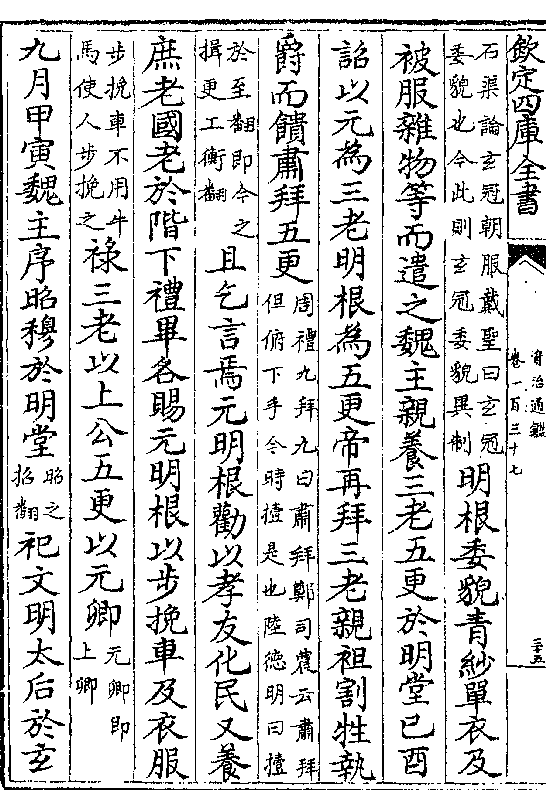 欽定四庫全書
資治通鑑
卷一百三十七
二十五
石渠論玄冠朝服戴聖曰玄冠
委貌也今此則玄冠委貌異制
明根委貌青紗單衣及
被服雜物等而遣之魏主親養三老五更於明堂己酉
詔以元為三老明根為五更帝再拜三老親袒割牲執
爵而饋肅拜五更
周禮九拜九曰肅拜鄭司農云肅拜
但俯下手今時撎是也陸德明曰撎
於至翻即今之
揖更工衡翻
且乞言焉元明根勸以孝友化民又養
庶老國老於階下禮畢各賜元明根以步挽車及衣服
步挽車不用牛
馬使人步挽之
祿三老以上公五更以元卿
元卿即
上卿
九月甲寅魏主序昭穆於明堂
昭之
招翻
祀文明太后於玄